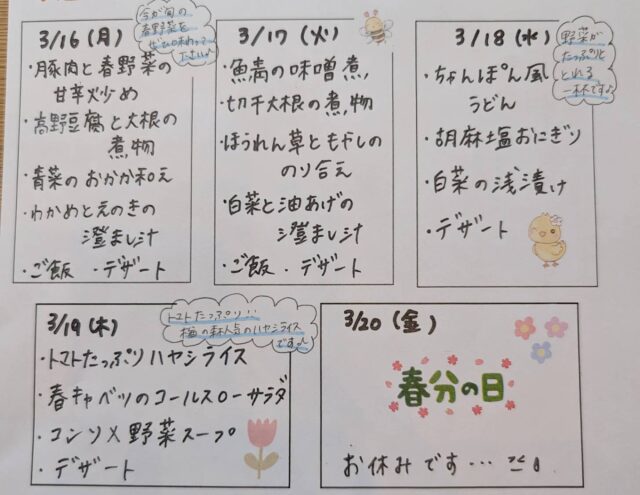 3/16(月)
今が旬の
春野菜を
ぜひ味わって
下さい♪
・豚肉と春野菜の
甘辛炒め
・高野豆腐と大根の
煮物
・青菜のおかか和え
・わかめとえのきの
澄まし汁
・ご飯 ・デザート
3/17(火)
・魚青の味噌煮
・切干大根の煮物
・ほうれん草ともやしの
のり合え
・白菜と油あげの
澄まし汁
・ご飯 ・デザート
3/18(水)
野菜が
たっぷりと
とれる
一杯です♪
・ちゃんぽん風
うどん
・胡麻塩おにぎり
・白菜の浅漬け
・デザート
3/19(木)
トマトたっぷり!!
楓の森人気のハヤシライス
です♪
・トマトたっぷりハヤシライス
・春キャベツのコールスローサラダ
・コンソメ野菜スープ
・デザート
3/20(金)
春分の日
お休みです…